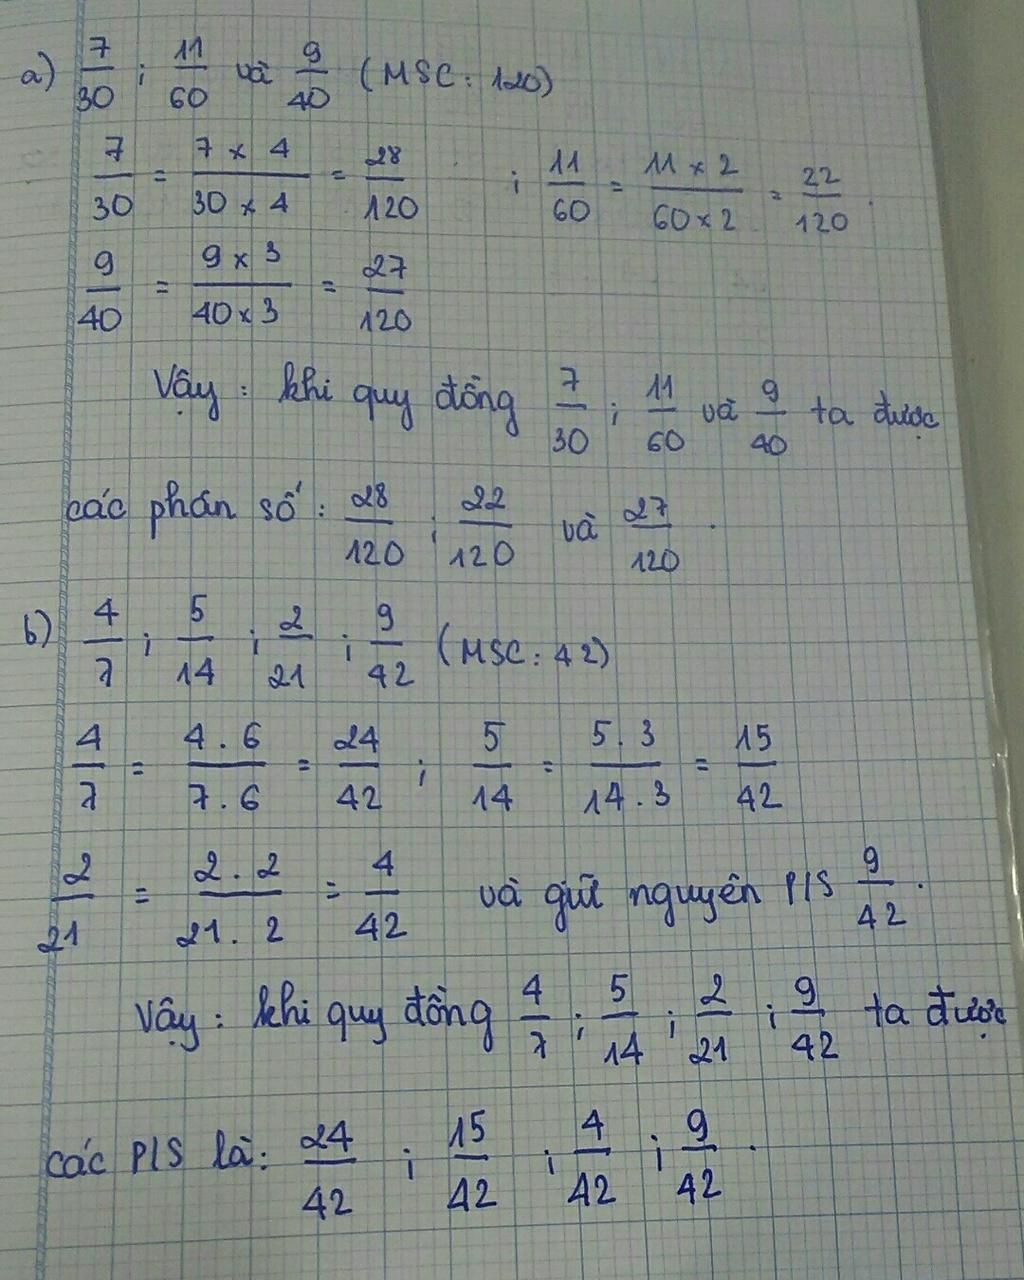 a) 7/30 ; 11/60 và 9/40 (MSC: 120)
7/30 = 7 x 4/30 x 4 = 28/120 ; 11/60 = 11 x 2/60 x 2 = 22/120.
9/40 = 9 x 3/40 x 3 = 27/120
Vậy: khi quy đồng 7/30 ; 11/60 và 9/40 ta được
các phân số: 28/120 ; 22/120 và 27/120.
b) 4/7 ; 5/14 ; 2/21 ; 9/42 (MSC: 42)
4/7 = 4 . 6/7 . 6 = 24/42 ; 5/14 = 5 . 3/14 . 3 = 15/42
2/21 = 2 . 2/21 . 2 = 4/42 và giữ nguyên P/S 9/42.
Vậy: khi quy đồng 4/7 ; 5/14 ; 2/21 ; 9/42 ta được
các P/S là: 24/42 ; 15/42 ; 4/42 ; 9/42.